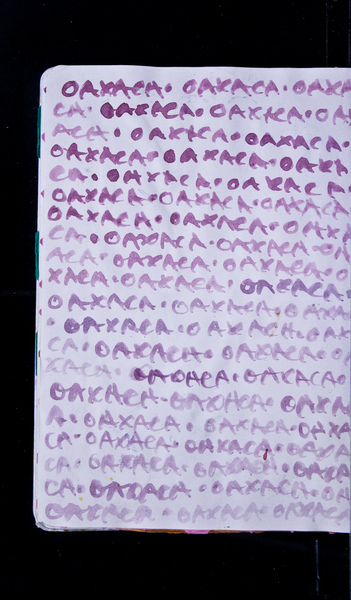 OAXACA · OAXACA · OAXA
CA · OAXACA · OAXACA · OA
ACA · OAXACA · OAXACA ·
OAXACA · OAXACA · OAXA
CA · OAXACA · OAXACA
OAXACA · OAXACA · OAXACA
OAXACA · OAXACA · OAX
CA · OAXACA · OAXACA · OA
ACA · OAXACA · OAXACA · O
XACA · OAXACA · OAXACA ·
OAXACA · OAXACA · OAXA
· OAXACA · OAXACA · OAX
CA · OAXACA · OAXACA · O
XACA · OAXACA · OAXACA ·
OAXACA · OAXACA · OAXA
A · OAXACA · OAXACA · OAXA
CA · OAXACA · OAXACA · OAXA
CA · OAXACA · OAXACA · OAXA
CA · OAXACA · OAXACA · OA
OAXACA · OAXACA · OAXACA